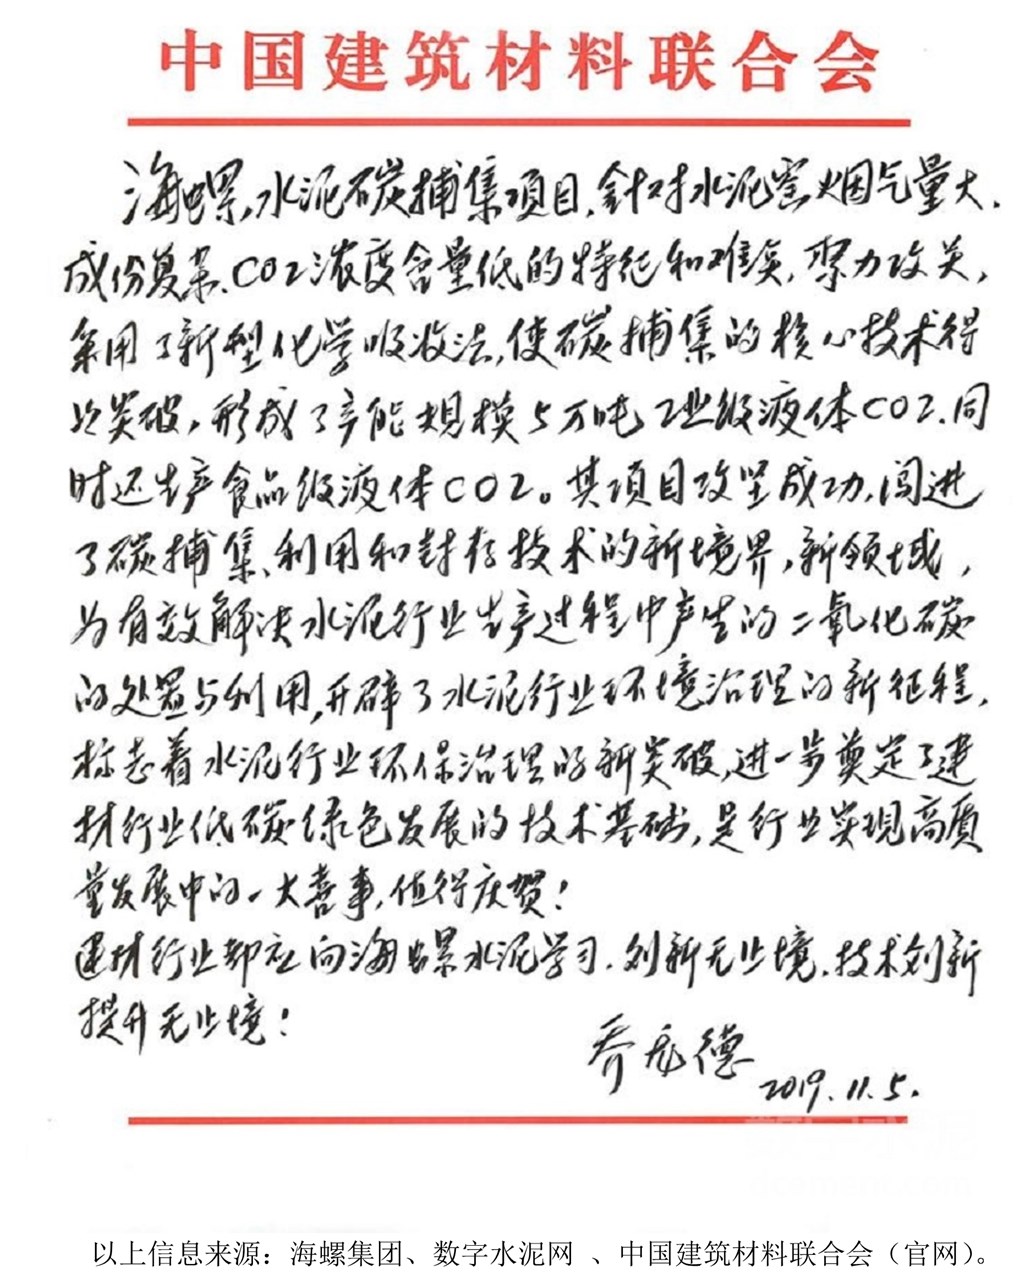 中国建筑材料联合会
海螺水泥碳捕集项目,针对水泥窑烟气量大、
成份复杂、CO2浓度含量低的特征和难点,聚力攻关,
采用了新型化学吸收法,使碳捕集的核心技术得
以突破,形成了产能规模5万吨工业级液体CO2.同
时还生产食品级液体CO2。其项目攻坚成功,闯进
了碳捕集、利用和封存技术的新境界,新领域,
为有效解决水泥行业生产过程中产生的二氧化碳
的处置与利用,开辟了水泥行业环境治理的新征程,
标志着水泥行业环保治理的新突破,进一步奠定了建
材行业低碳绿色发展的技术基础,是行业实现高质
量发展中的一大喜事,值得庆贺!
建材行业都应向海螺水泥学习.创新无止境.技术创新
提升无止境!
乔龙德
2019.11.5.
数字水泥
dcement.com
以上信息来源:海螺集团、数字水泥网 、中国建筑材料联合会(官网)。